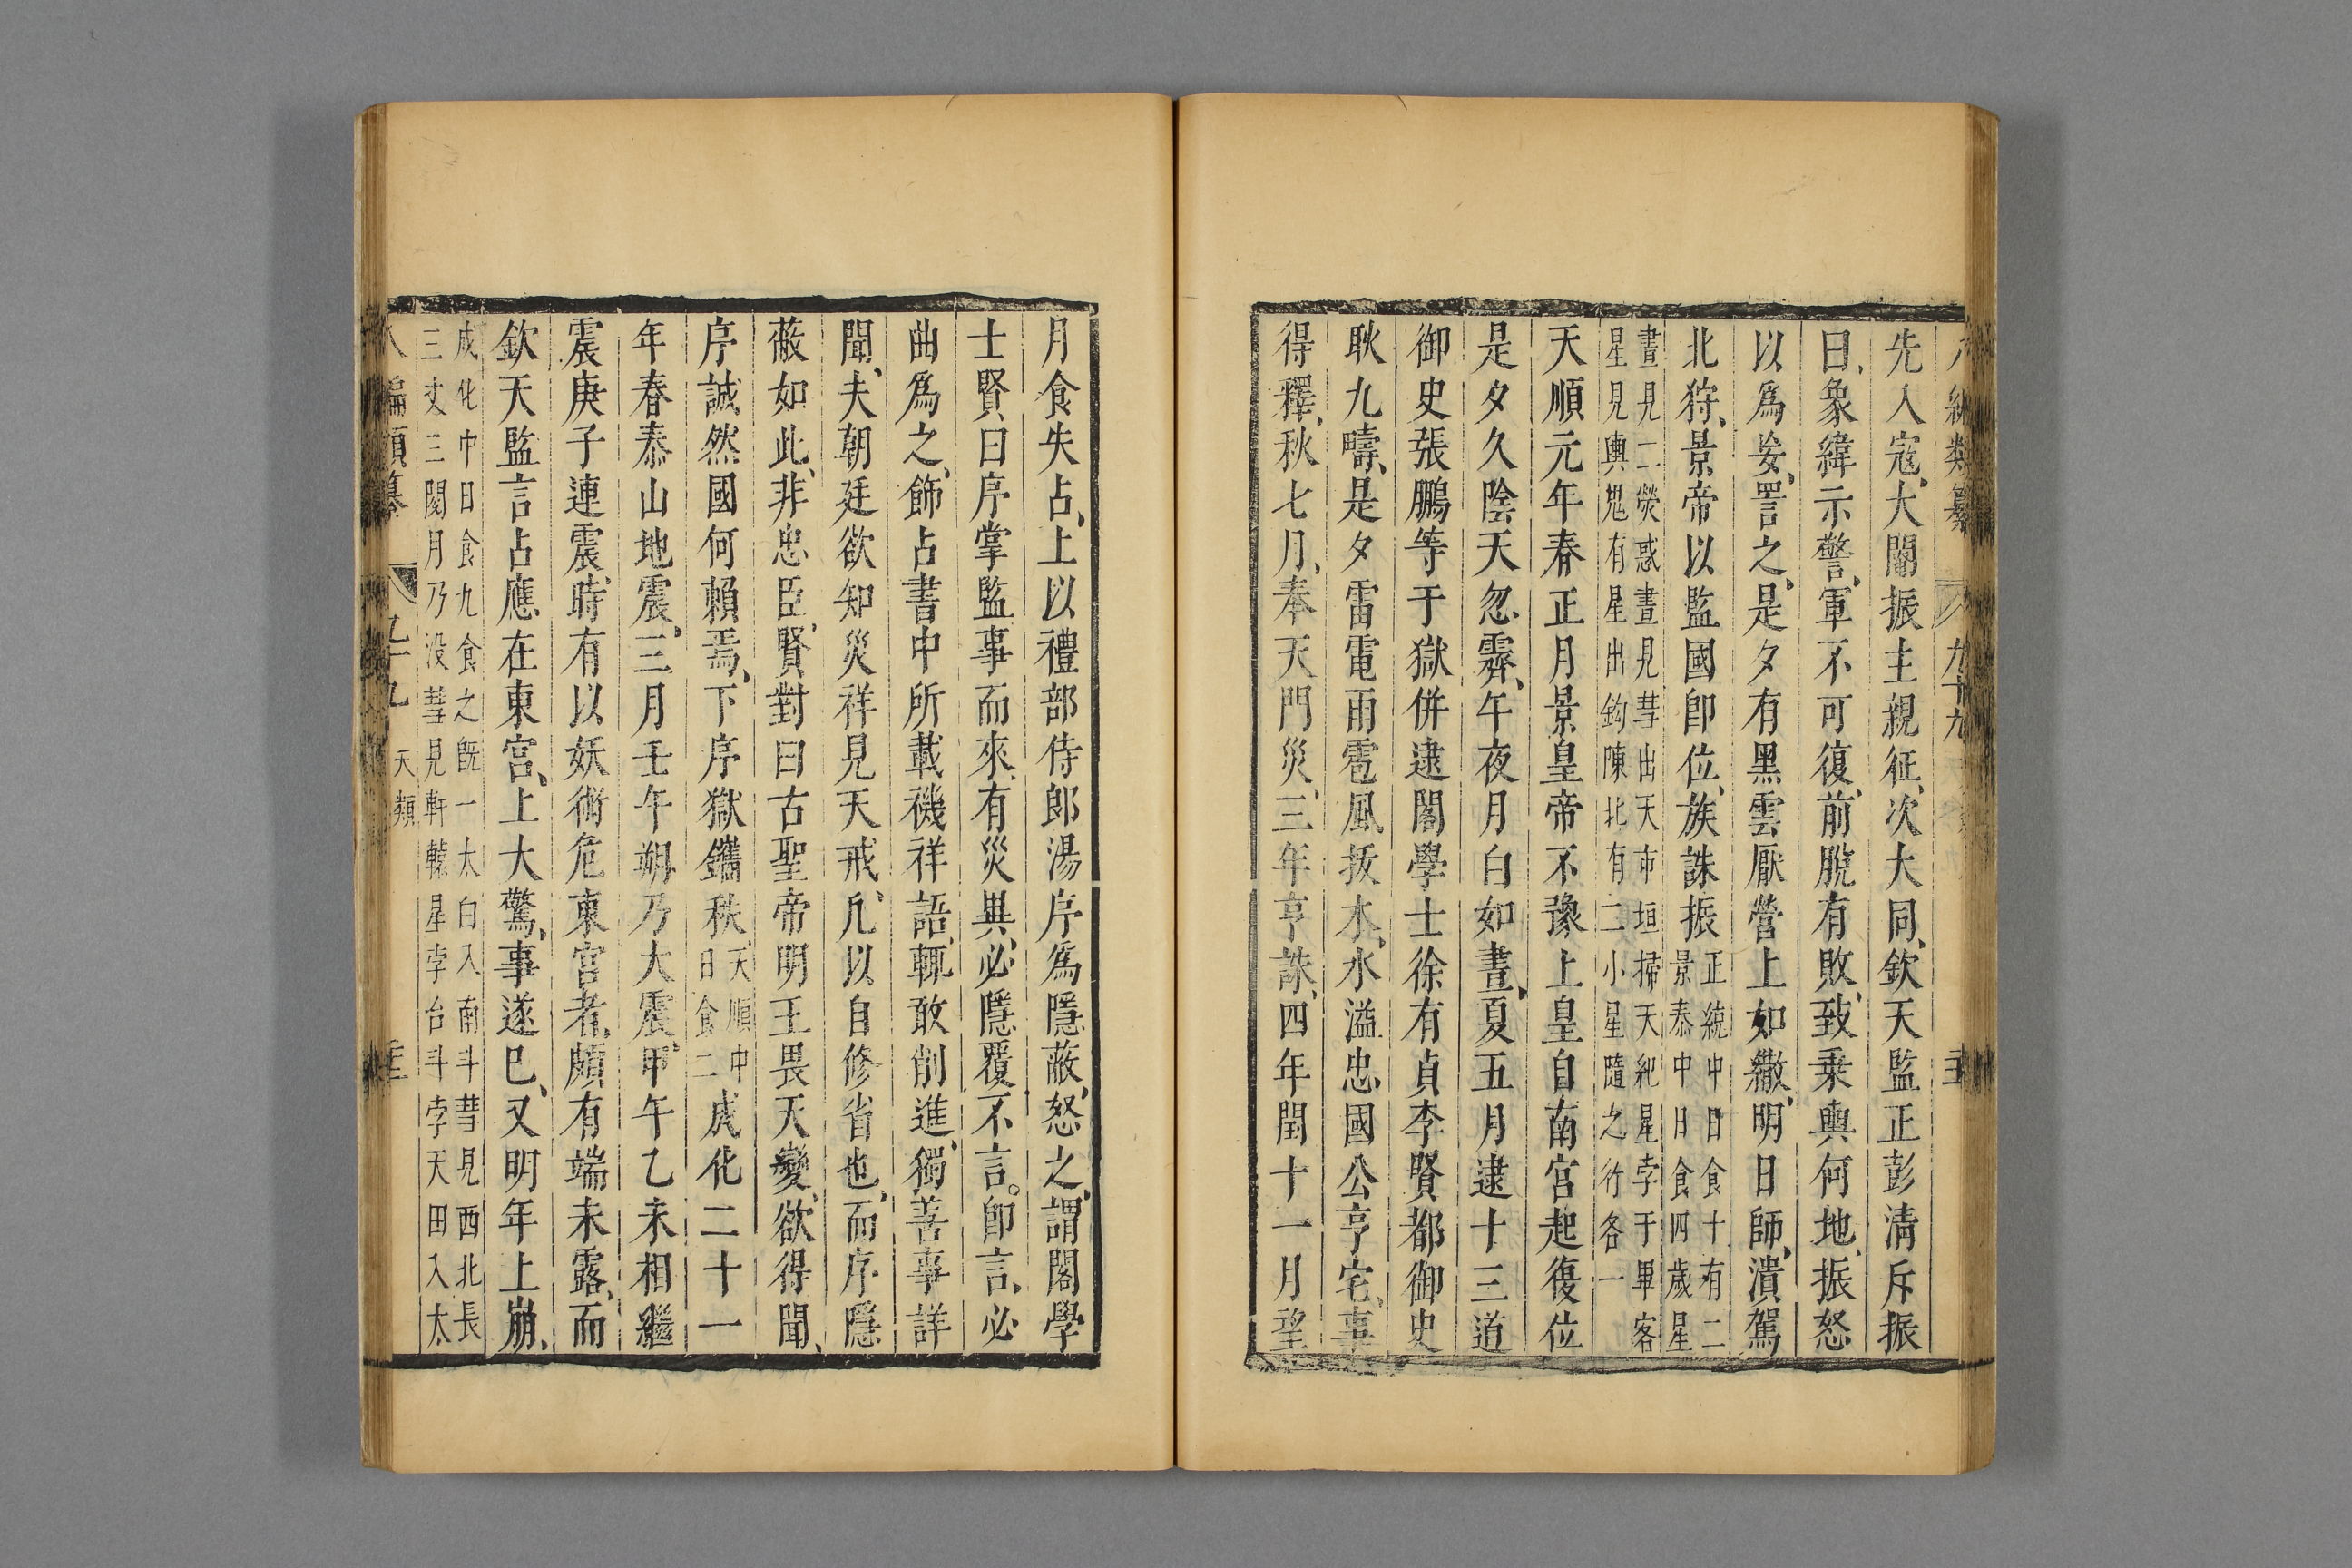 先入寇、大閹振主親征、次大同、欽天監正彭清斥振
曰、象緯示警、軍不可復、前脫有敗、致乗輿何地、振怒
以爲妄、詈之、是夕有黑雲厭營上如繖、明日師潰駕
北狩、景帝以監國卽位、族誅振正統中日食十有二
景泰中日食四歲星
晝見二熒惑晝見彗出天市垣掃天紀星孛于畢客
星見輿䰟有星出鈎陳北有二小星隨之行各一
天順元年春正月景皇帝不豫上皇自南宮起復位
是夕久陰天忽霽、午夜月白如晝、夏五月逮十三道
御史張鵬等于獄併逮閣學士徐有貞李賢都御史
耿九疇、是夕雷電雨雹風拔木、水溢忠國公亨宅、事
得釋、秋七月、奉天門災、三年亨誅、四年閏十一月望
月食失占、上以禮部侍郎湯序爲隱蔽、怒之、謂閣學
士賢曰序掌監事而來、有災異、必隱覆不言。卽言、必
曲爲之、飾占書中所載禨祥語、輒敢削進、獨善事詳
聞、夫朝廷欲知災祥見天戒、凡以自修省也、而序隱
蔽如此、非忠臣、賢對曰古聖帝明王畏天變、欲得聞、
序誠然國何賴焉、下序獄鑴秩、天順中
日食二成化二十一
年春泰山地震、三月壬午朔乃大震、甲午乙未相繼
震庚子連震、時有以妖術危東宮者、頗有端未露、而
欽天監言占應、在東宮、上大驚、事遂巳、又明年上崩、
成化中日食九食之旣一太白入南斗彗見西北長
三丈三閱月乃没彗見軒轅星孛台斗孛天田入太
八編類纂
九十九
天類